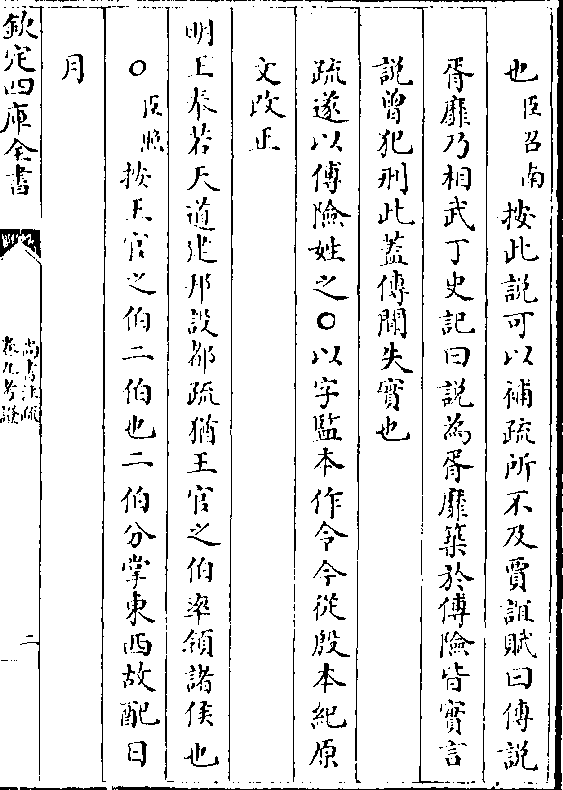 也臣召南按此説可以補疏所不及賈誼賦曰傅説
胥靡乃相武丁史記曰説為胥靡築於傅險皆實言
説曾犯刑此蓋傳聞失實也
疏遂以傅險姓之○以字監本作令今從殷本紀原
文改正
明王奉若天道建邦設都疏猶王官之伯率領諸侯也
○臣照按王官之伯二伯也二伯分掌東西故配日
月
欽定四庫全書
尚書注疏
卷九考證
二